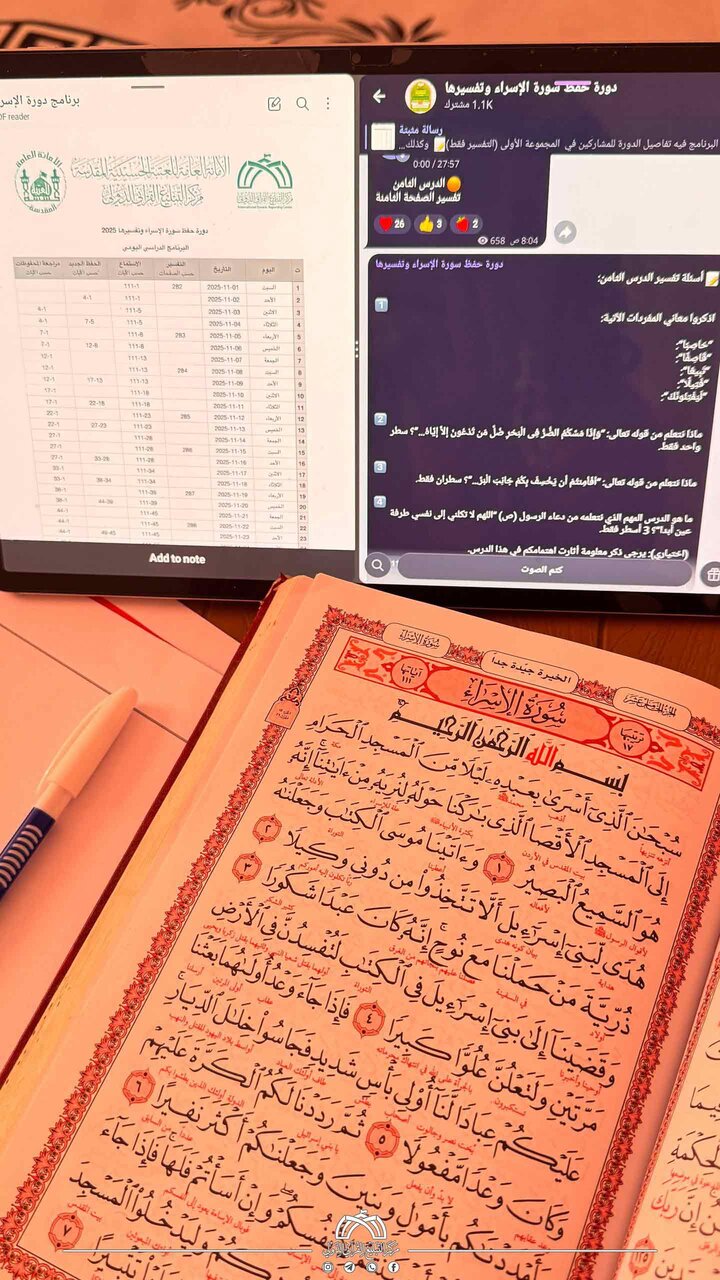 برنامج دورة الإسر
PDF reader
الأمانة العامة للعتبة الحسينية المقدسة
مركز التبليغ القرآني الدولي
دورة حفظ سورة الإسراء وتفسيرها 2025
البرنامج الدراسي اليومي
ت اليوم التاريخ التفسير حسب الصفحات الاستماع حسب الآيات الحفظ الجديد حسب الآيات مراجعة المحفوظات حسب الآيات
1 السبت 2025-11-01 282 111-1
2 الأحد 2025-11-02 111-1 4-1
3 الاثنين 2025-11-03 111-5 4-1
4 الثلاثاء 2025-11-04 111-5 7-5 4-1
5 الأربعاء 2025-11-05 283 111-8 7-1
6 الخميس 2025-11-06 111-8 12-8 7-1
7 الجمعة 2025-11-07 111-13 12-1
8 السبت 2025-11-08 284 111-13 12-1
9 الأحد 2025-11-09 111-13 17-13 12-1
10 الاثنين 2025-11-10 111-18 17-1
11 الثلاثاء 2025-11-11 111-18 22-18 17-1
12 الأربعاء 2025-11-12 285 111-23 22-1
13 الخميس 2025-11-13 111-23 27-23 22-1
14 الجمعة 2025-11-14 111-28 27-1
15 السبت 2025-11-15 286 111-28 27-1
16 الأحد 2025-11-16 111-28 33-28 27-1
17 الاثنين 2025-11-17 111-34 33-1
18 الثلاثاء 2025-11-18 111-34 38-34 33-1
19 الأربعاء 2025-11-19 287 111-39 38-1
20 الخميس 2025-11-20 111-39 44-39 38-1
21 الجمعة 2025-11-21 111-45 44-1
22 السبت 2025-11-22 288 111-45 44-1
23 الأحد 2025-11-23 111-45 49-45 44-1
Add to note
دورة حفظ سورة الإسراء وتفسيرها
1.1K مشترك
رسالة مثبتة
البرنامج فيه تفاصيل الدورة للمشاركين في المجموعة الأولى (التفسير فقط) وكذلك...
0:00 / 27:57
الدرس الثامن
تفسير الصفحة الثامنة
26 3 2
658 8:04 ص
دورة حفظ سورة الإسراء وتفسيرها
أسئلة تفسير الدرس الثامن:
1
اذكروا معاني المفردات الآتية:
"حَاصِبًا":
"قَاصِفًا":
"تَبِيعًا":
"فَتِيلًا":
"لَيَفْتِنُونَكَ":
2
ماذا نتعلم من قوله تعالى: "وَإِذَا مَسَّكُمُ الضُّرُّ فِي الْبَحْرِ ضَلَّ مَن تَدْعُونَ إِلَّا إِيَّاهُ..."؟ سطر
واحد فقط.
3
ماذا نتعلم من قوله تعالى: "أَفَأَمِنتُمْ أَن يَخْسِفَ بِكُمْ جَانِبَ الْبَرِّ..."؟ سطران فقط.
4
ما هو الدرس المهم الذي نتعلمه من دعاء الرسول (ص) "اللهم لا تكلني إلى نفسي طرفة
عين أبدا"؟ 3 أسطر فقط.
(اختياري): يرجى ذكر معلومة أثارت اهتمامكم في هذا الدرس.
كتم الصوت
سورة الإسراء
الخيرة جيّدة جدا
الجزء الخامس عشر
آياتها ١١١
سُورَةُ الإِسْرَاءِ
ترتيبها ١٧
بِسْمِ اللَّهِ الرَّحْمَٰنِ الرَّحِيمِ
سُبْحَٰنَ ٱلَّذِىٓ أَسْرَىٰ بِعَبْدِهِۦ لَيْلًا مِّنَ ٱلْمَسْجِدِ ٱلْحَرَامِ
إِلَى ٱلْمَسْجِدِ ٱلْأَقْصَا ٱلَّذِى بَٰرَكْنَا حَوْلَهُۥ لِنُرِيَهُۥ مِنْ ءَايَٰتِنَآ إِنَّهُۥ
هُوَ ٱلسَّمِيعُ ٱلْبَصِيرُ ١ وَءَاتَيْنَا مُوسَى ٱلْكِتَٰبَ وَجَعَلْنَٰهُ
هُدًى لِّبَنِىٓ إِسْرَٰٓءِيلَ أَلَّا تَتَّخِذُوا۟ مِن دُونِى وَكِيلًا ٢
ذُرِّيَّةَ مَنْ حَمَلْنَا مَعَ نُوحٍ إِنَّهُۥ كَانَ عَبْدًا شَكُورًا ٣
وَقَضَيْنَآ إِلَىٰ بَنِىٓ إِسْرَٰٓءِيلَ فِى ٱلْكِتَٰبِ لَتُفْسِدُنَّ فِى ٱلْأَرْضِ
مَرَّتَيْنِ وَلَتَعْلُنَّ عُلُوًّا كَبِيرًا ٤ فَإِذَا جَآءَ وَعْدُ أُولَىٰهُمَا بَعَثْنَا
عَلَيْكُمْ عِبَادًا لَّنَآ أُو۟لِى بَأْسٍ شَدِيدٍ فَجَاسُوا۟ خِلَٰلَ ٱلدِّيَارِ
وَكَانَ وَعْدًا مَّفْعُولًا ٥ ثُمَّ رَدَدْنَا لَكُمُ ٱلْكَرَّةَ عَلَيْهِمْ
وَأَمْدَدْنَٰكُم بِأَمْوَٰلٍ وَبَنِينَ وَجَعَلْنَٰكُمْ أَكْثَرَ نَفِيرًا ٦
وَإِنْ أَسَأْتُمْ فَلَهَا فَإِذَا جَآءَ
وَلِيَدْخُلُوا۟ ٱلْمَسْجِدَ
٧